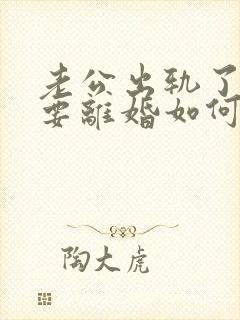 老公出轨了
要離婚如何
陶大虎